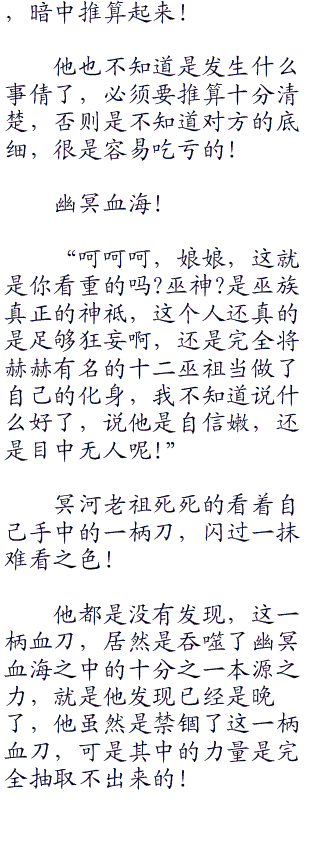 ，暗中推算起来！
他也不知道是发生什么
事倩了，必须要推算十分清
楚，否则是不知道对方的底
细，很是容易吃亏的！
幽冥血海！
“呵呵呵，娘娘，这就
是你看重的吗?巫神?是巫族
真正的神祇，这个人还真的
是足够狂妄啊，还是完全将
赫赫有名的十二巫祖当做了
自己的化身，我不知道说什
么好了，说他是自信嫩，还
是目中无人呢！”
冥河老祖死死的看着自
己手中的一柄刀，闪过一抹
难看之色！
他都是没有发现，这一
柄血刀，居然是吞噬了幽冥
血海之中的十分之一本源之
力，就是他发现已经是晚
了，他虽然是禁锢了这一柄
血刀，可是其中的力量是完
全抽取不出来的！